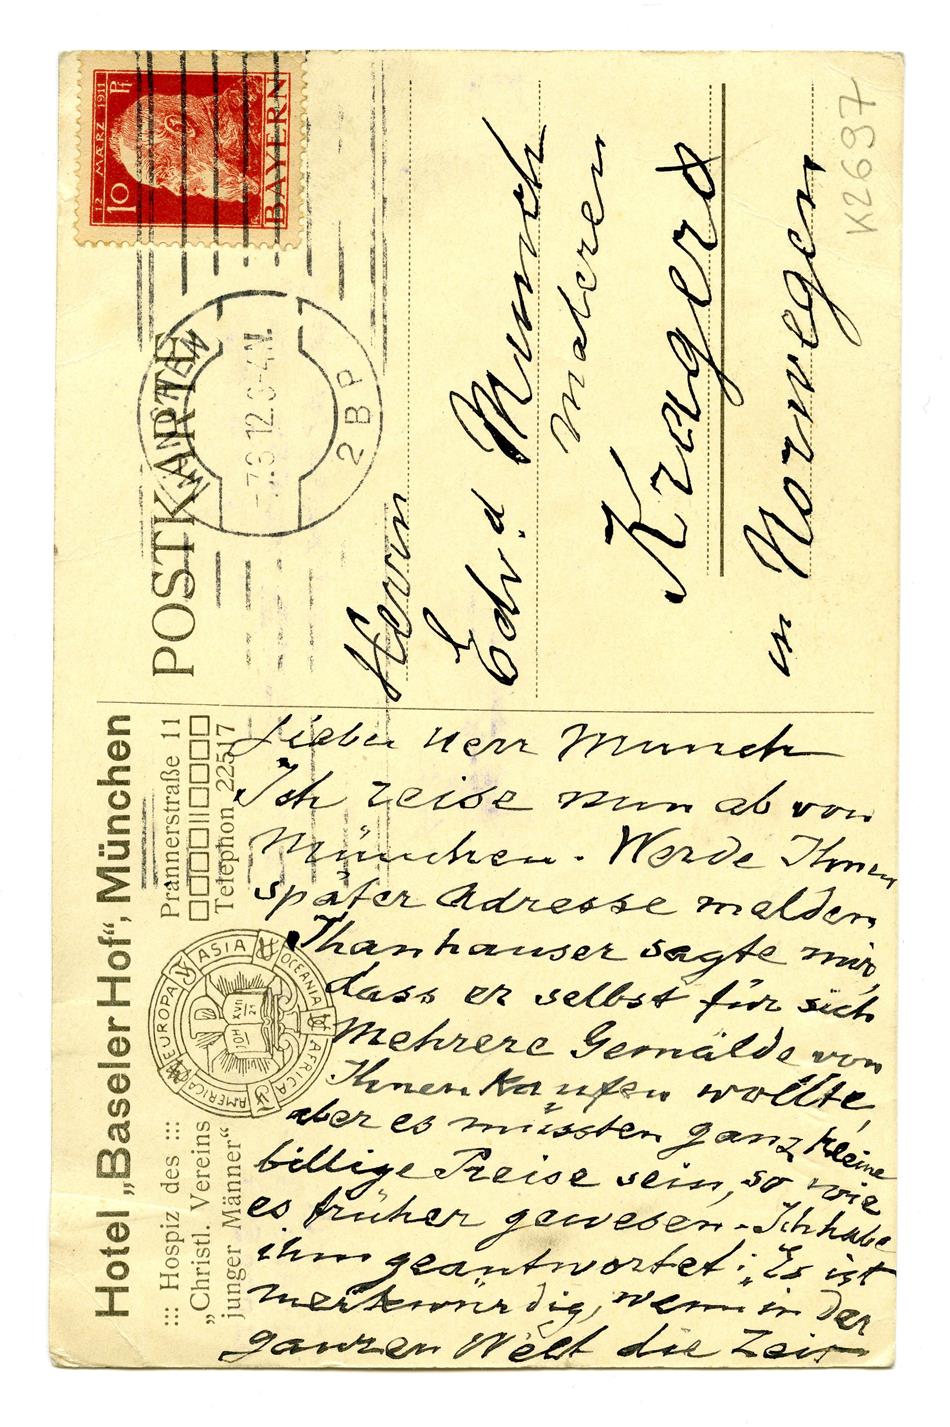 Hotel „Baseler Hof“, München
::: Hospiz des :::
„Christl. Vereins
junger Männer“
Prannerstraße 11
Telephon 22517
EUROPA ASIA OCEANIA AFRICA AMERICA
JOH XVII 21
POSTKARTE
12 MÄRZ 1911
10 Pf
BAYERN
MÜNCHEN
12.3-4N.
2 BP
K2697
Herrn
Edv.d Munch
Maleren
Kragerø
in Norwegen
Lieber Herr Munch
Ich reise nun ab von
München. Werde Ihnen
später Adresse melden,
Thanhauser sagte mir,
dass er selbst für sich
Mehrere Gemälde von
Ihnen kaufen wollte,
aber es müssten ganz kleine
billige Preise sein, so wie
es früher gewesen. Ich habe
ihm geantwortet: „Es ist
merkwürdig, wenn in der
ganzen Welt die Zeit